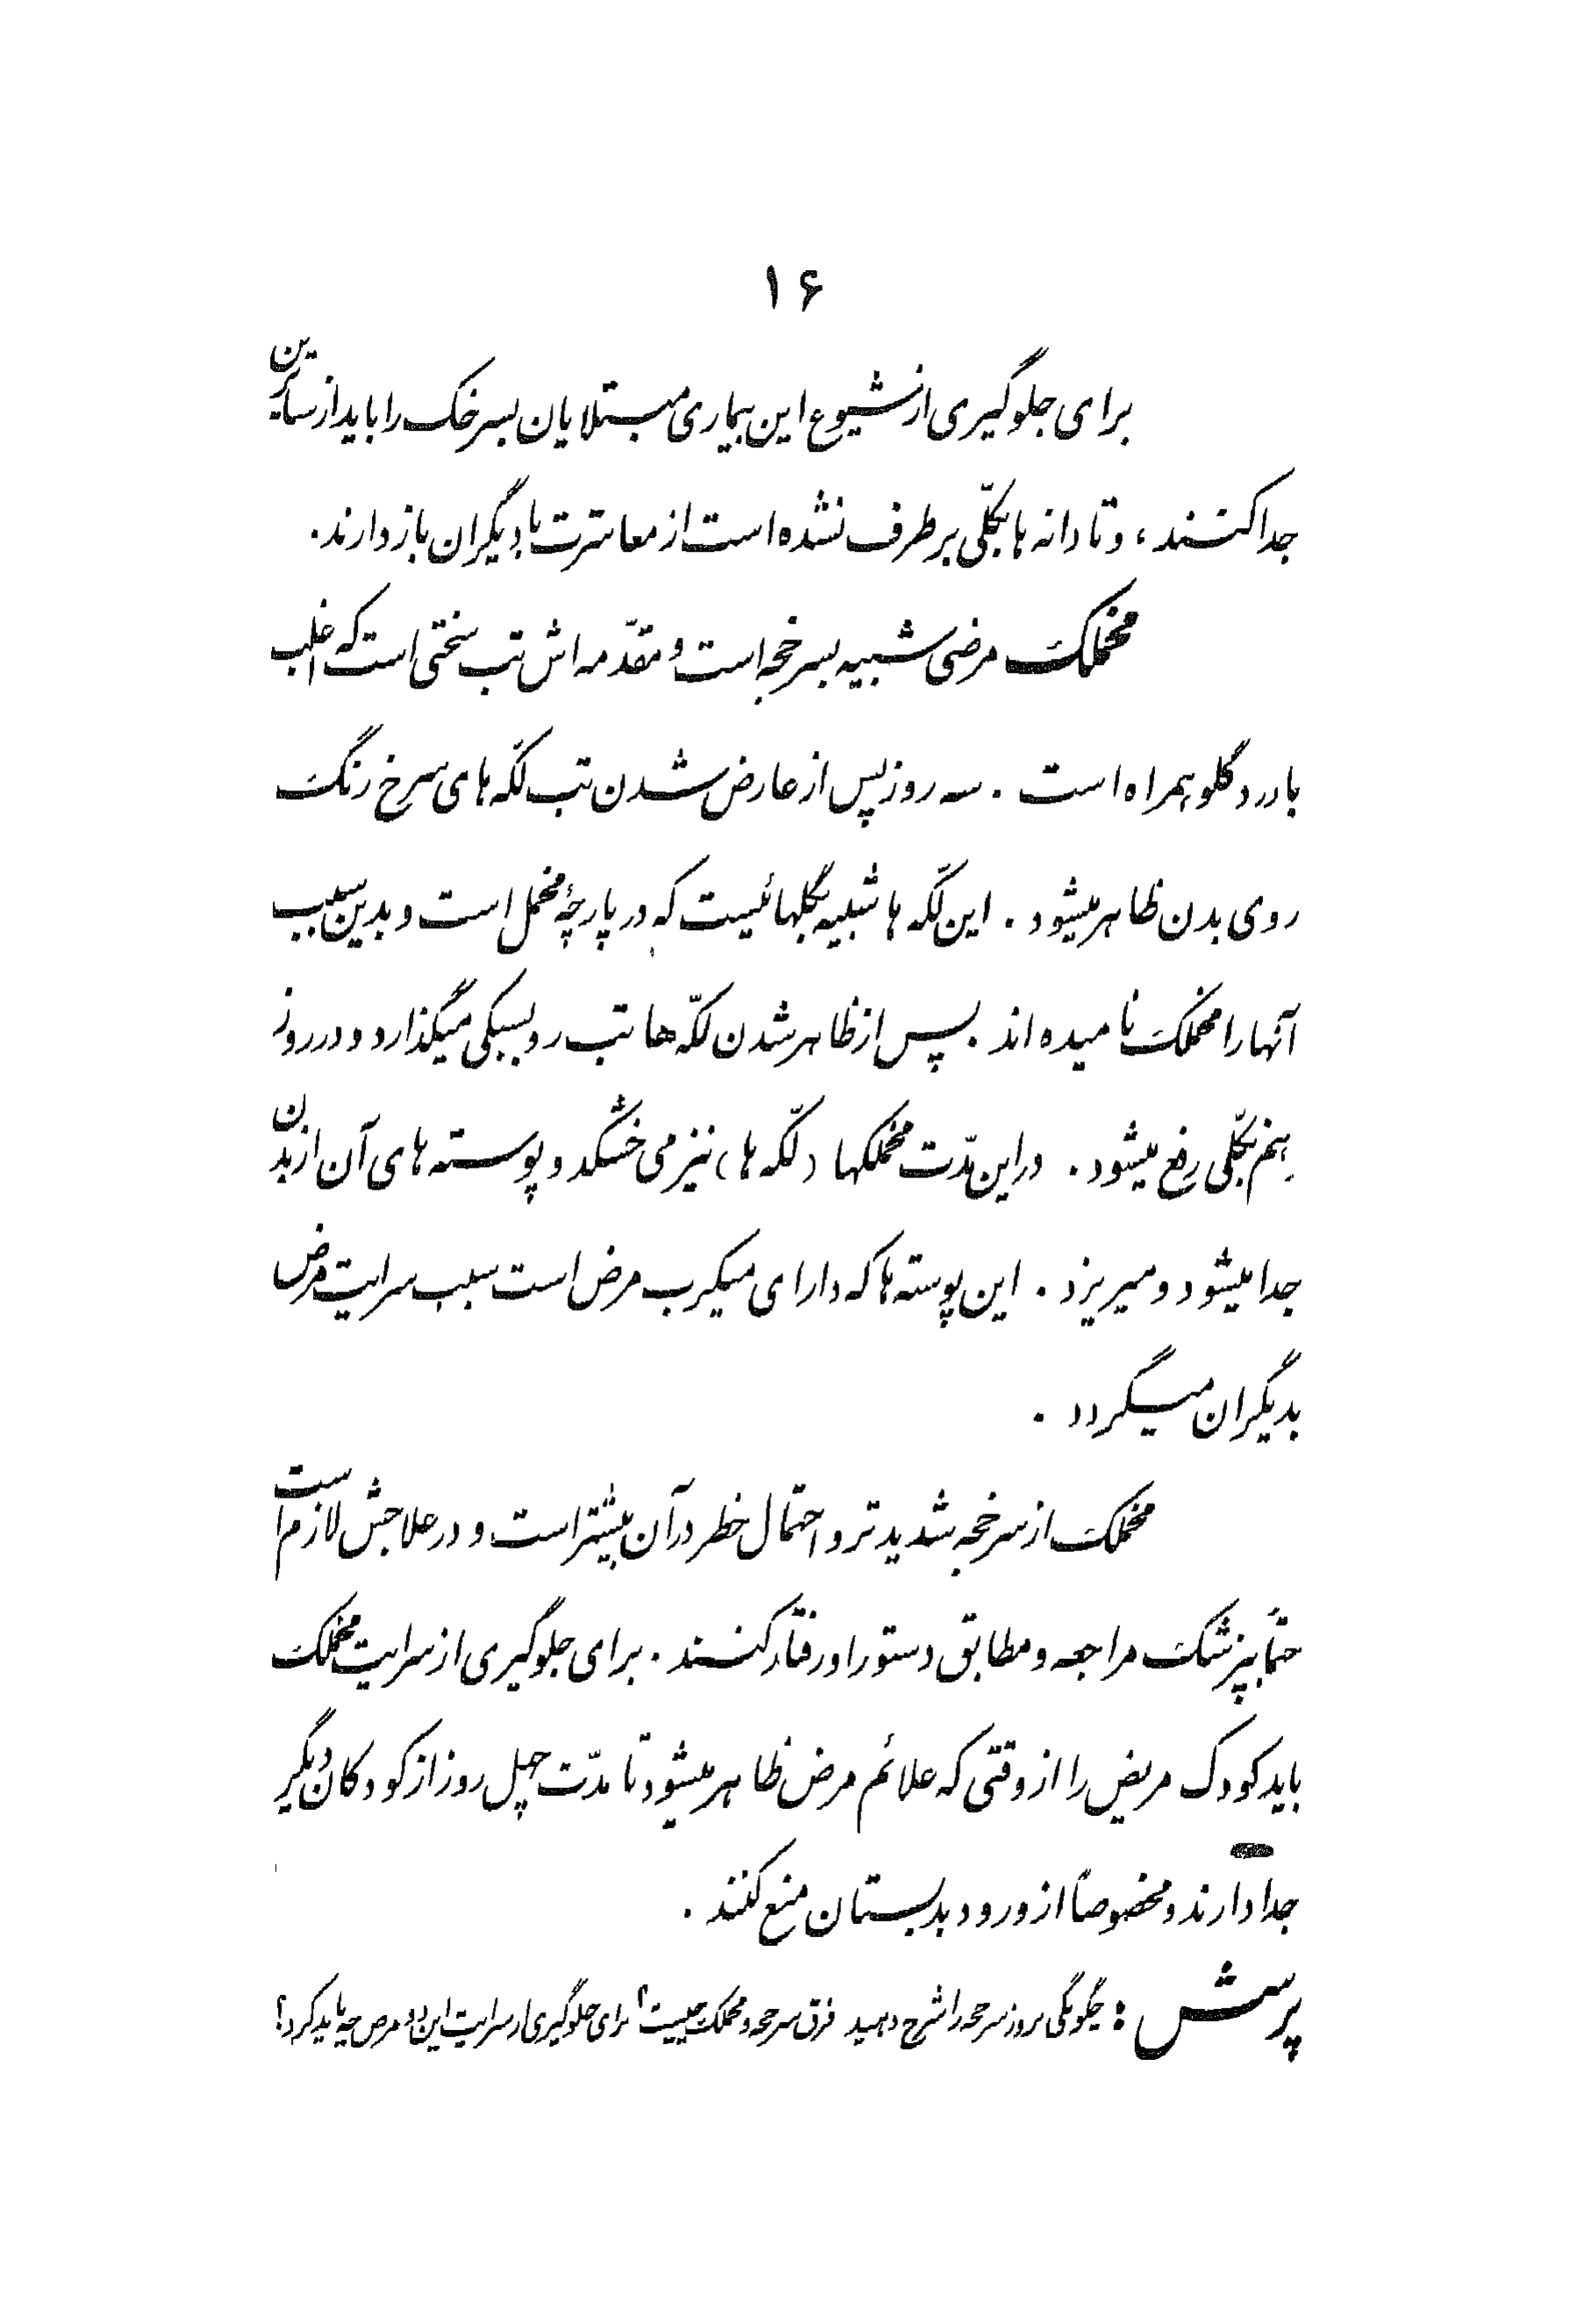 ۱۶
برای جلوگیری از شیوع این بیماری مبتلایان بسرخک را باید از سایرین
جدا کنند ، و تا دانه ها بکلّی بر طرف نشده است از معاشرت با دیگران باز دارند .
مخملک مرضی شبیه بسرخجه است و مقدّمه اش تب سختی است که اغلب
با درد گلو همراه است . سه روز پس از عارض شدن تب لکّه های سرخ رنگ
روی بدن ظاهر میشود . این لکّه ها شبیه بگلهائیست که در پارچهٔ مخمل است و بدین سبب
آنها را مخملک نامیده اند . پس از ظاهر شدن لکّه ها تب رو بسبکی میگذارد و در روز
نهم بکلّی رفع میشود . در این مدّت مخملکها ( لکّه ها ) نیز می خشکد و پوسته های آن از بدن
جدا میشود و میریزد . این پوسته ها که دارای میکرب مرض است سبب سرایت مرض
بدیگران میگردد .
مخملک از سرخجه شدیدتر و احتمال خطر در آن بیشتر است و در علاجش لازم است
حتماً بپزشک مراجعه و مطابق دستور او رفتار کنند . برای جلوگیری از سرایت مخملک
باید کودک مریض را از وقتی که علائم مرض ظاهر میشود تا مدّت چهل روز از کودکان دیگر
جدا دارند و مخصوصاً از ورود بدبستان منع کنند .
پرسش : چگونگی بروز سرخجه را شرح دهید فرق سرخجه و مخملک چیست ؟ برای جلوگیری از سرایت این دو مرض چه باید کرد ؟